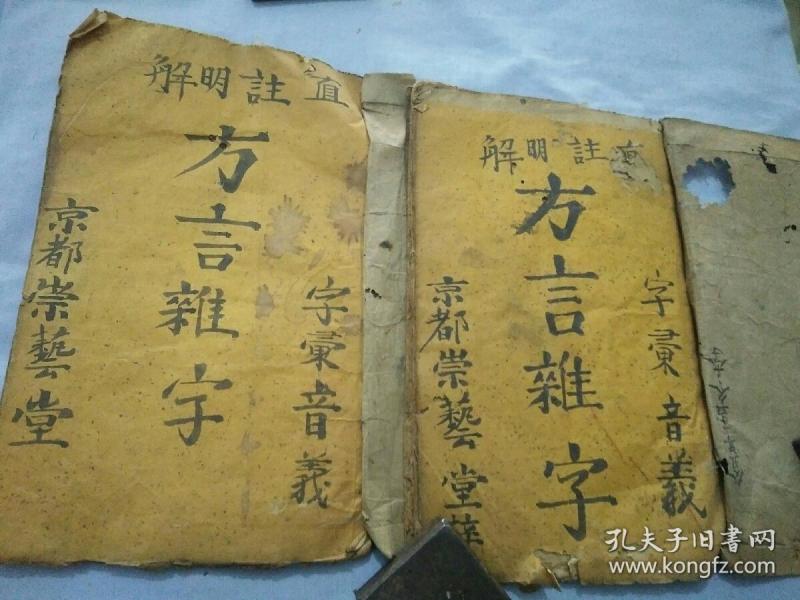 直註明解
字彙音義
方言雜字
京都崇藝堂
直註明解
字彙音義
方言雜字
京都崇藝堂
孔夫子旧书网
www.kongfz.com